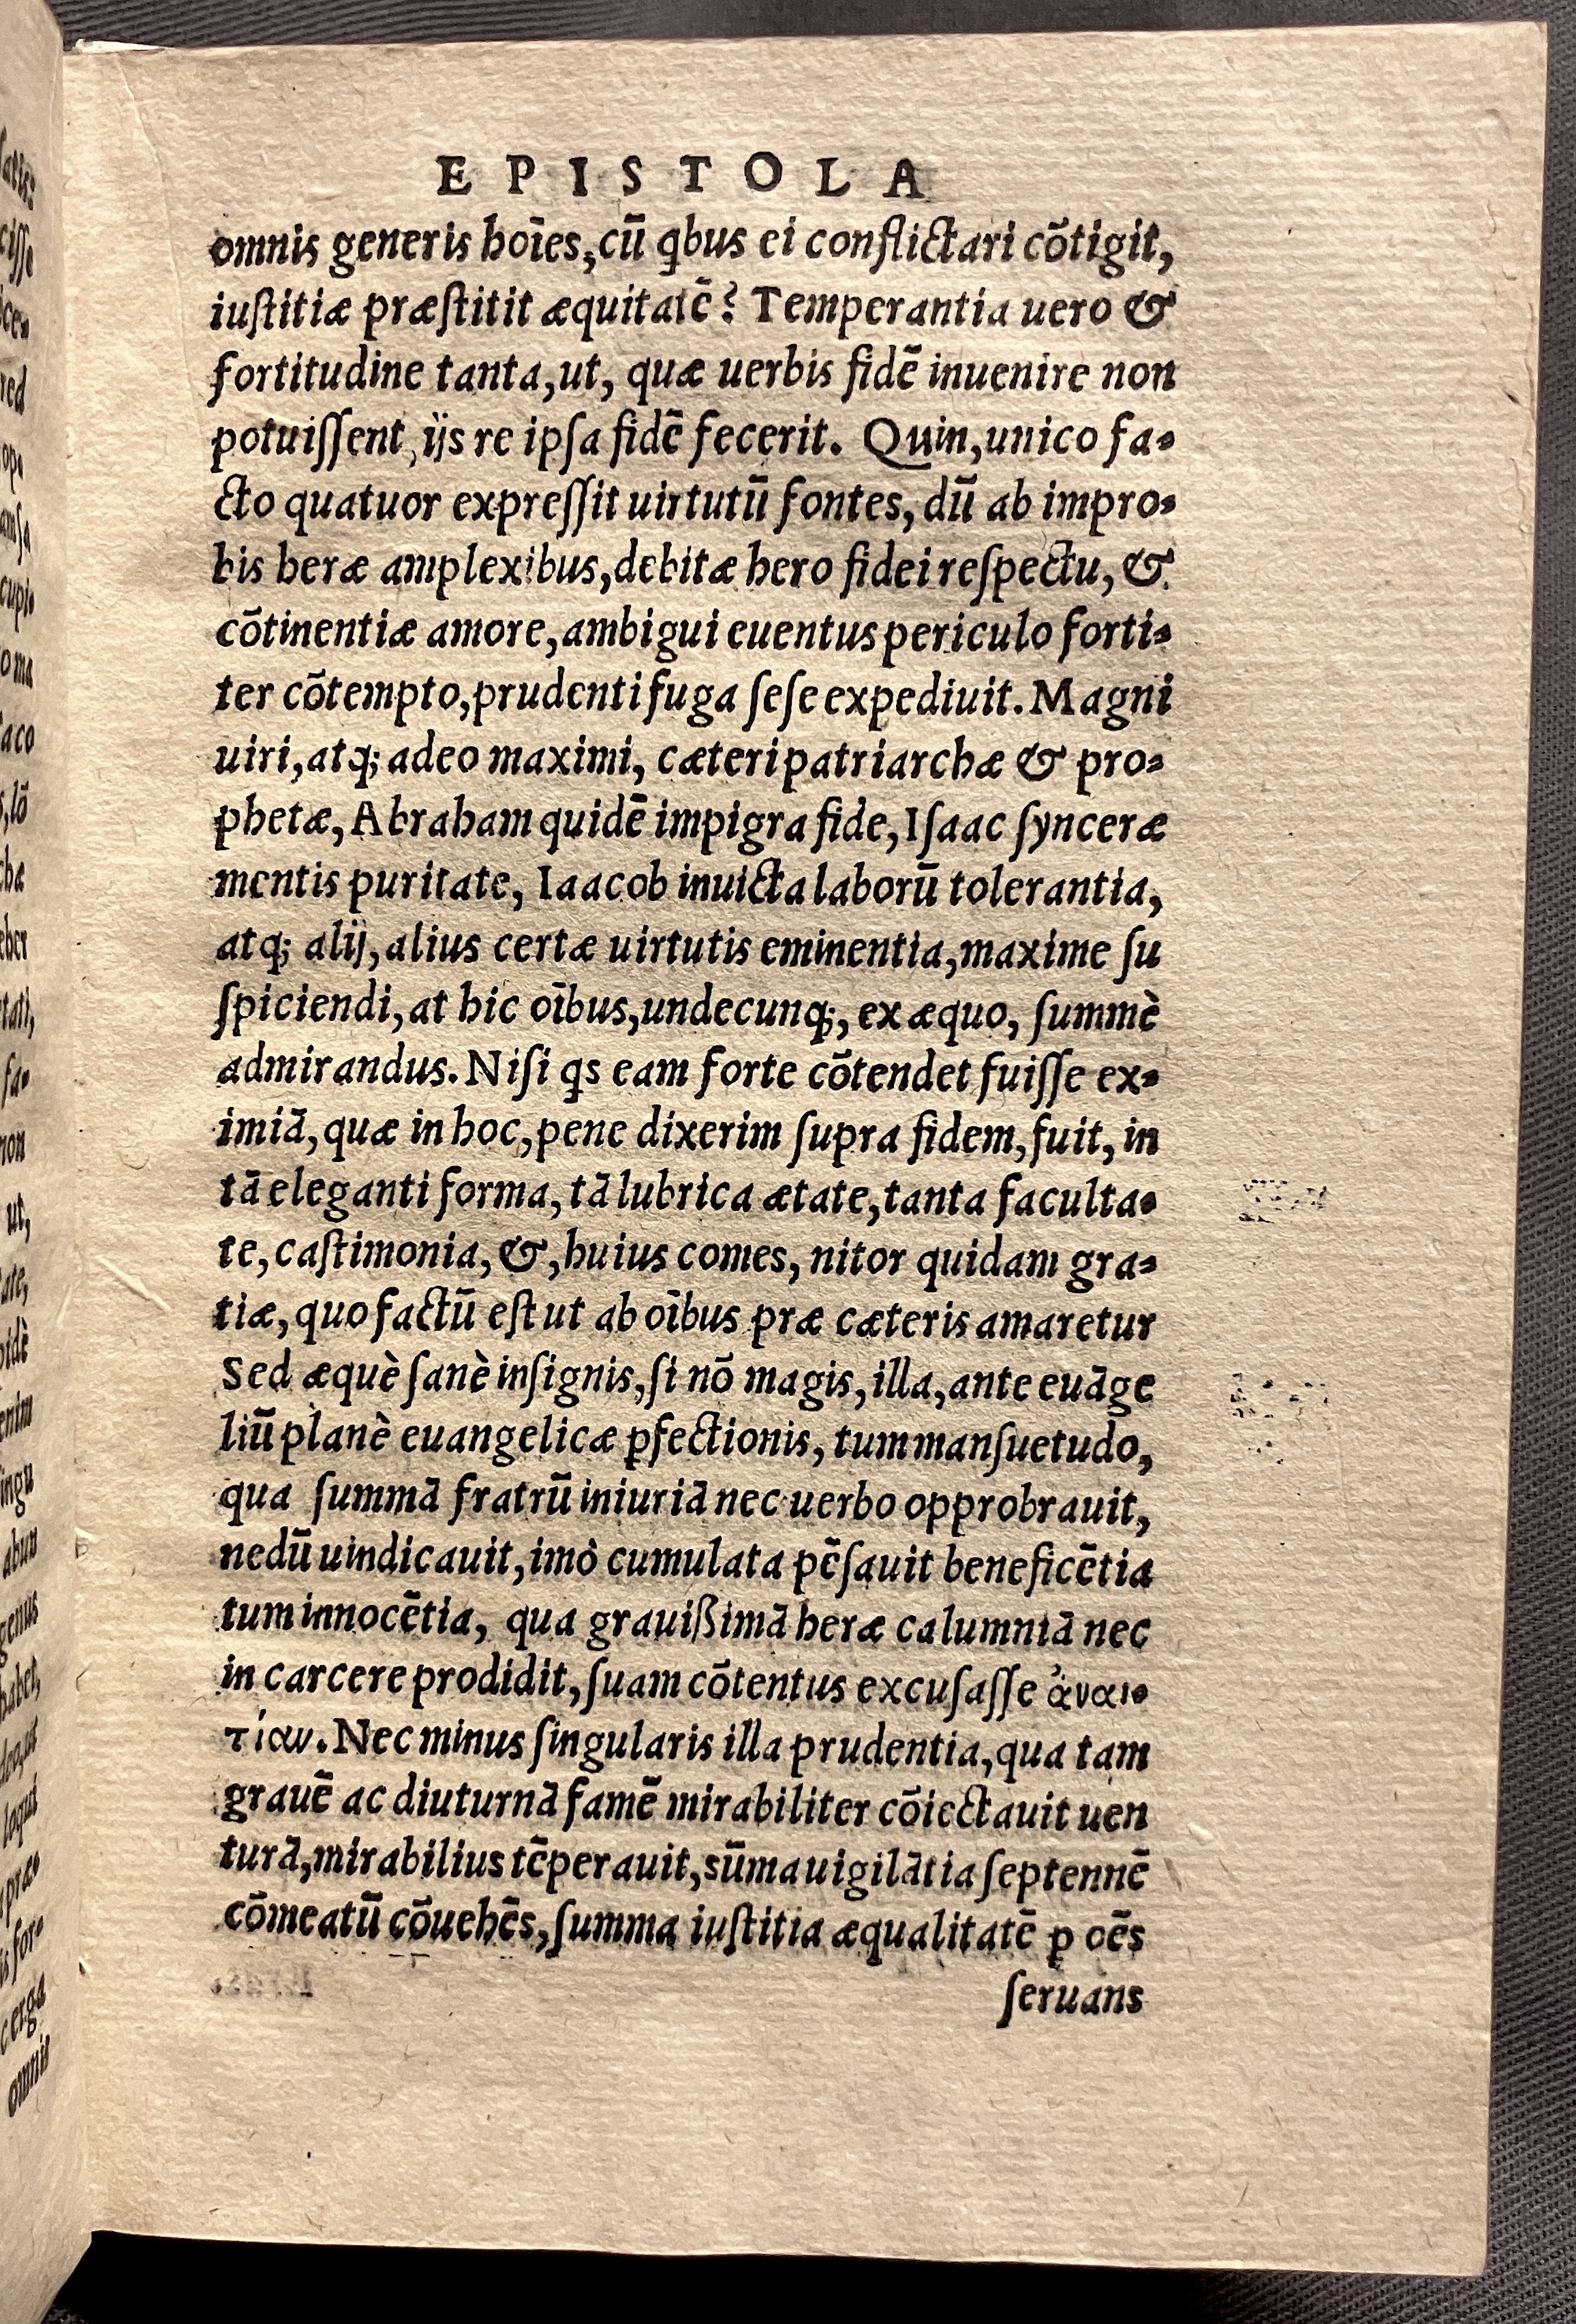 EPISTOLA
omnis generis hoīes, cū ꝗbus ei conflictari cōtigit,
iuſtitiæ præſtitit æquitatē? Temperantia uero &
fortitudine tanta, ut, quæ uerbis fidē inuenire non
potuiſſent, ijs re ipſa fidē fecerit. Quin, unico fa-
cto quatuor expreſſit uirtutū fontes, dū ab impro-
bis heræ amplexibus, debitæ hero fidei reſpectu, &
cōtinentiæ amore, ambigui euentus periculo forti-
ter cōtempto, prudenti fuga ſeſe expediuit. Magni
uiri, atq; adeo maximi, cæteri patriarchæ & pro-
phetæ, Abraham quidē impigra fide, Iſaac ſynceræ
mentis puritate, Iaacob inuicta laborū tolerantia,
atq; alij, alius certæ uirtutis eminentia, maxime ſu
ſpiciendi, at hic oībus, undecunq;, ex æquo, ſummè
admirandus. Niſi ꝗs eam forte cōtendet fuiſſe ex-
imiā, quæ in hoc, pene dixerim ſupra fidem, fuit, in
tā eleganti forma, tā lubrica ætate, tanta faculta-
te, caſtimonia, &, huius comes, nitor quidam gra-
tiæ, quo factū eſt ut ab oībus præ cæteris amaretur
Sed æquè ſanè inſignis, ſi nō magis, illa, ante euāge
liū planè euangelicæ ꝑfectionis, tum manſuetudo,
qua ſummā fratrū iniuriā nec uerbo opprobrauit,
nedū uindicauit, imò cumulata pēſauit beneficētia
tum innocētia, qua grauißimā heræ calumniā nec
in carcere prodidit, ſuam cōtentus excuſaſſe ἀναι-
τίαν. Nec minus ſingularis illa prudentia, qua tam
grauē ac diuturnā famē mirabiliter cōiectauit uen
turā, mirabilius tēperauit, sūma uigilātia ſeptennē
cōmeatū cōuehēs, ſumma iuſtitia æqualitatē ꝑ oēs
ſeruans